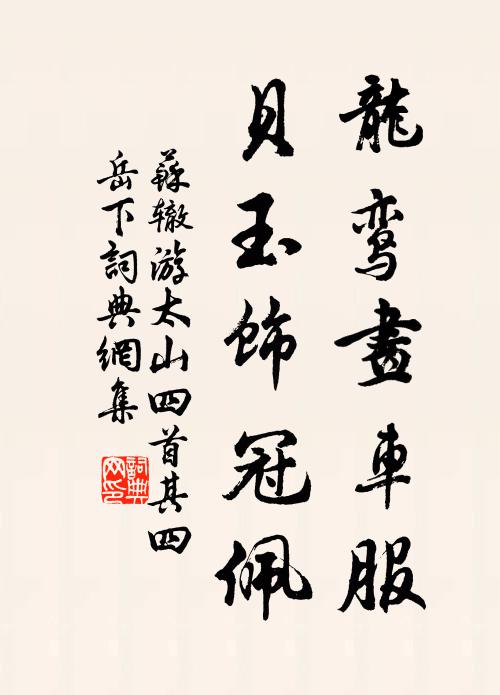 龍鸾畫車服
貝玉飾冠佩
蘇辙游太山四首其四
岳下詞典網集
詞典网印